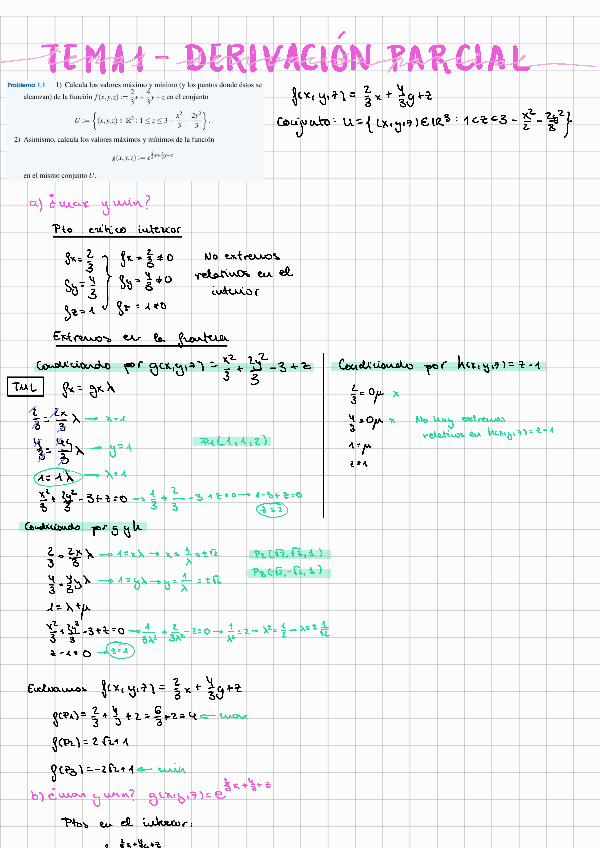 TEMA 1 - DERIVACIÓN PARCIAL
Problema 1.1 1) Calcula los valores máximo y mínimo (y los puntos donde éstos se
alcanzan) de la función f(x,y,z) := 2/3 x + 4/3 y + z en el conjunto
U := { (x,y,z) ∈ ℝ³ : 1 ≤ z ≤ 3 − x²/3 − 2y²/3 }.
2) Asimismo, calcula los valores máximos y mínimos de la función
g(x,y,z) := e^(2/3 x + 4/3 y + z)
en el mismo conjunto U.
f(x,y,z) = 2/3 x + 4/3 y + z
Conjunto: U = {(x,y,z) ∈ ℝ³ :
a) ¿max y min?
Pto crítico interior
fx = 2/3
fy = 4/3
fz = 1
fx = 2/3 ≠ 0
fy = 4/3 ≠ 0
fz = 1 ≠ 0
No extremos
relativos en el
interior
Extremos en la frontera
Condicionando por g(x,y,z) = x²/3 + 2y²/3 − 3 + z
TML
fx = gx λ
2/3 = 2x/3 λ → x = 1
4/3 = 4y/3 λ → y = 1
1 = 1λ → λ = 1
P1(1,1,2)
x²/3 + 2y²/3 − 3 + z = 0 → 1/3 + 2/3 − 3 + z = 0 → 1 − 3 + z = 0
z = 2
Condicionando por h(x,y,z) = z − 1
2/3 = 0μ x
4/3 = 0μ x
1 = μ
z = 1
No hay extremos
relativos en h(x,y,z) = z − 1
Condicionando por g y h
2/3 = 2x/3 λ → 1 = xλ → x = 1/λ = ±√2
4/3 = 4/3 yλ → 1 = yλ → y = 1/λ = ±√2
1 = λ + μ
P2(√2, √2, 1)
P3(-√2, -√2, 1)
x²/3 + 2y²/3 − 3 + z = 0 → 1/3λ² + 2/3λ² − 2 = 0 → 1/λ² = 2 → λ² = 1/2 → λ = ± 1/√2
z − 1 = 0 → z = 1
Evaluamos f(x,y,z) = 2/3 x + 4/3 y + z
f(P1) = 2/3 + 4/3 + 2 = 6/3 + 2 = 4 ← max
f(P2) = 2√2 + 1
f(P3) = −2√2 + 1 ← min
b) ¿max y min? g(x,y,z) = e^(2/3 x + 4/3 y + z)
Ptos en el interior: